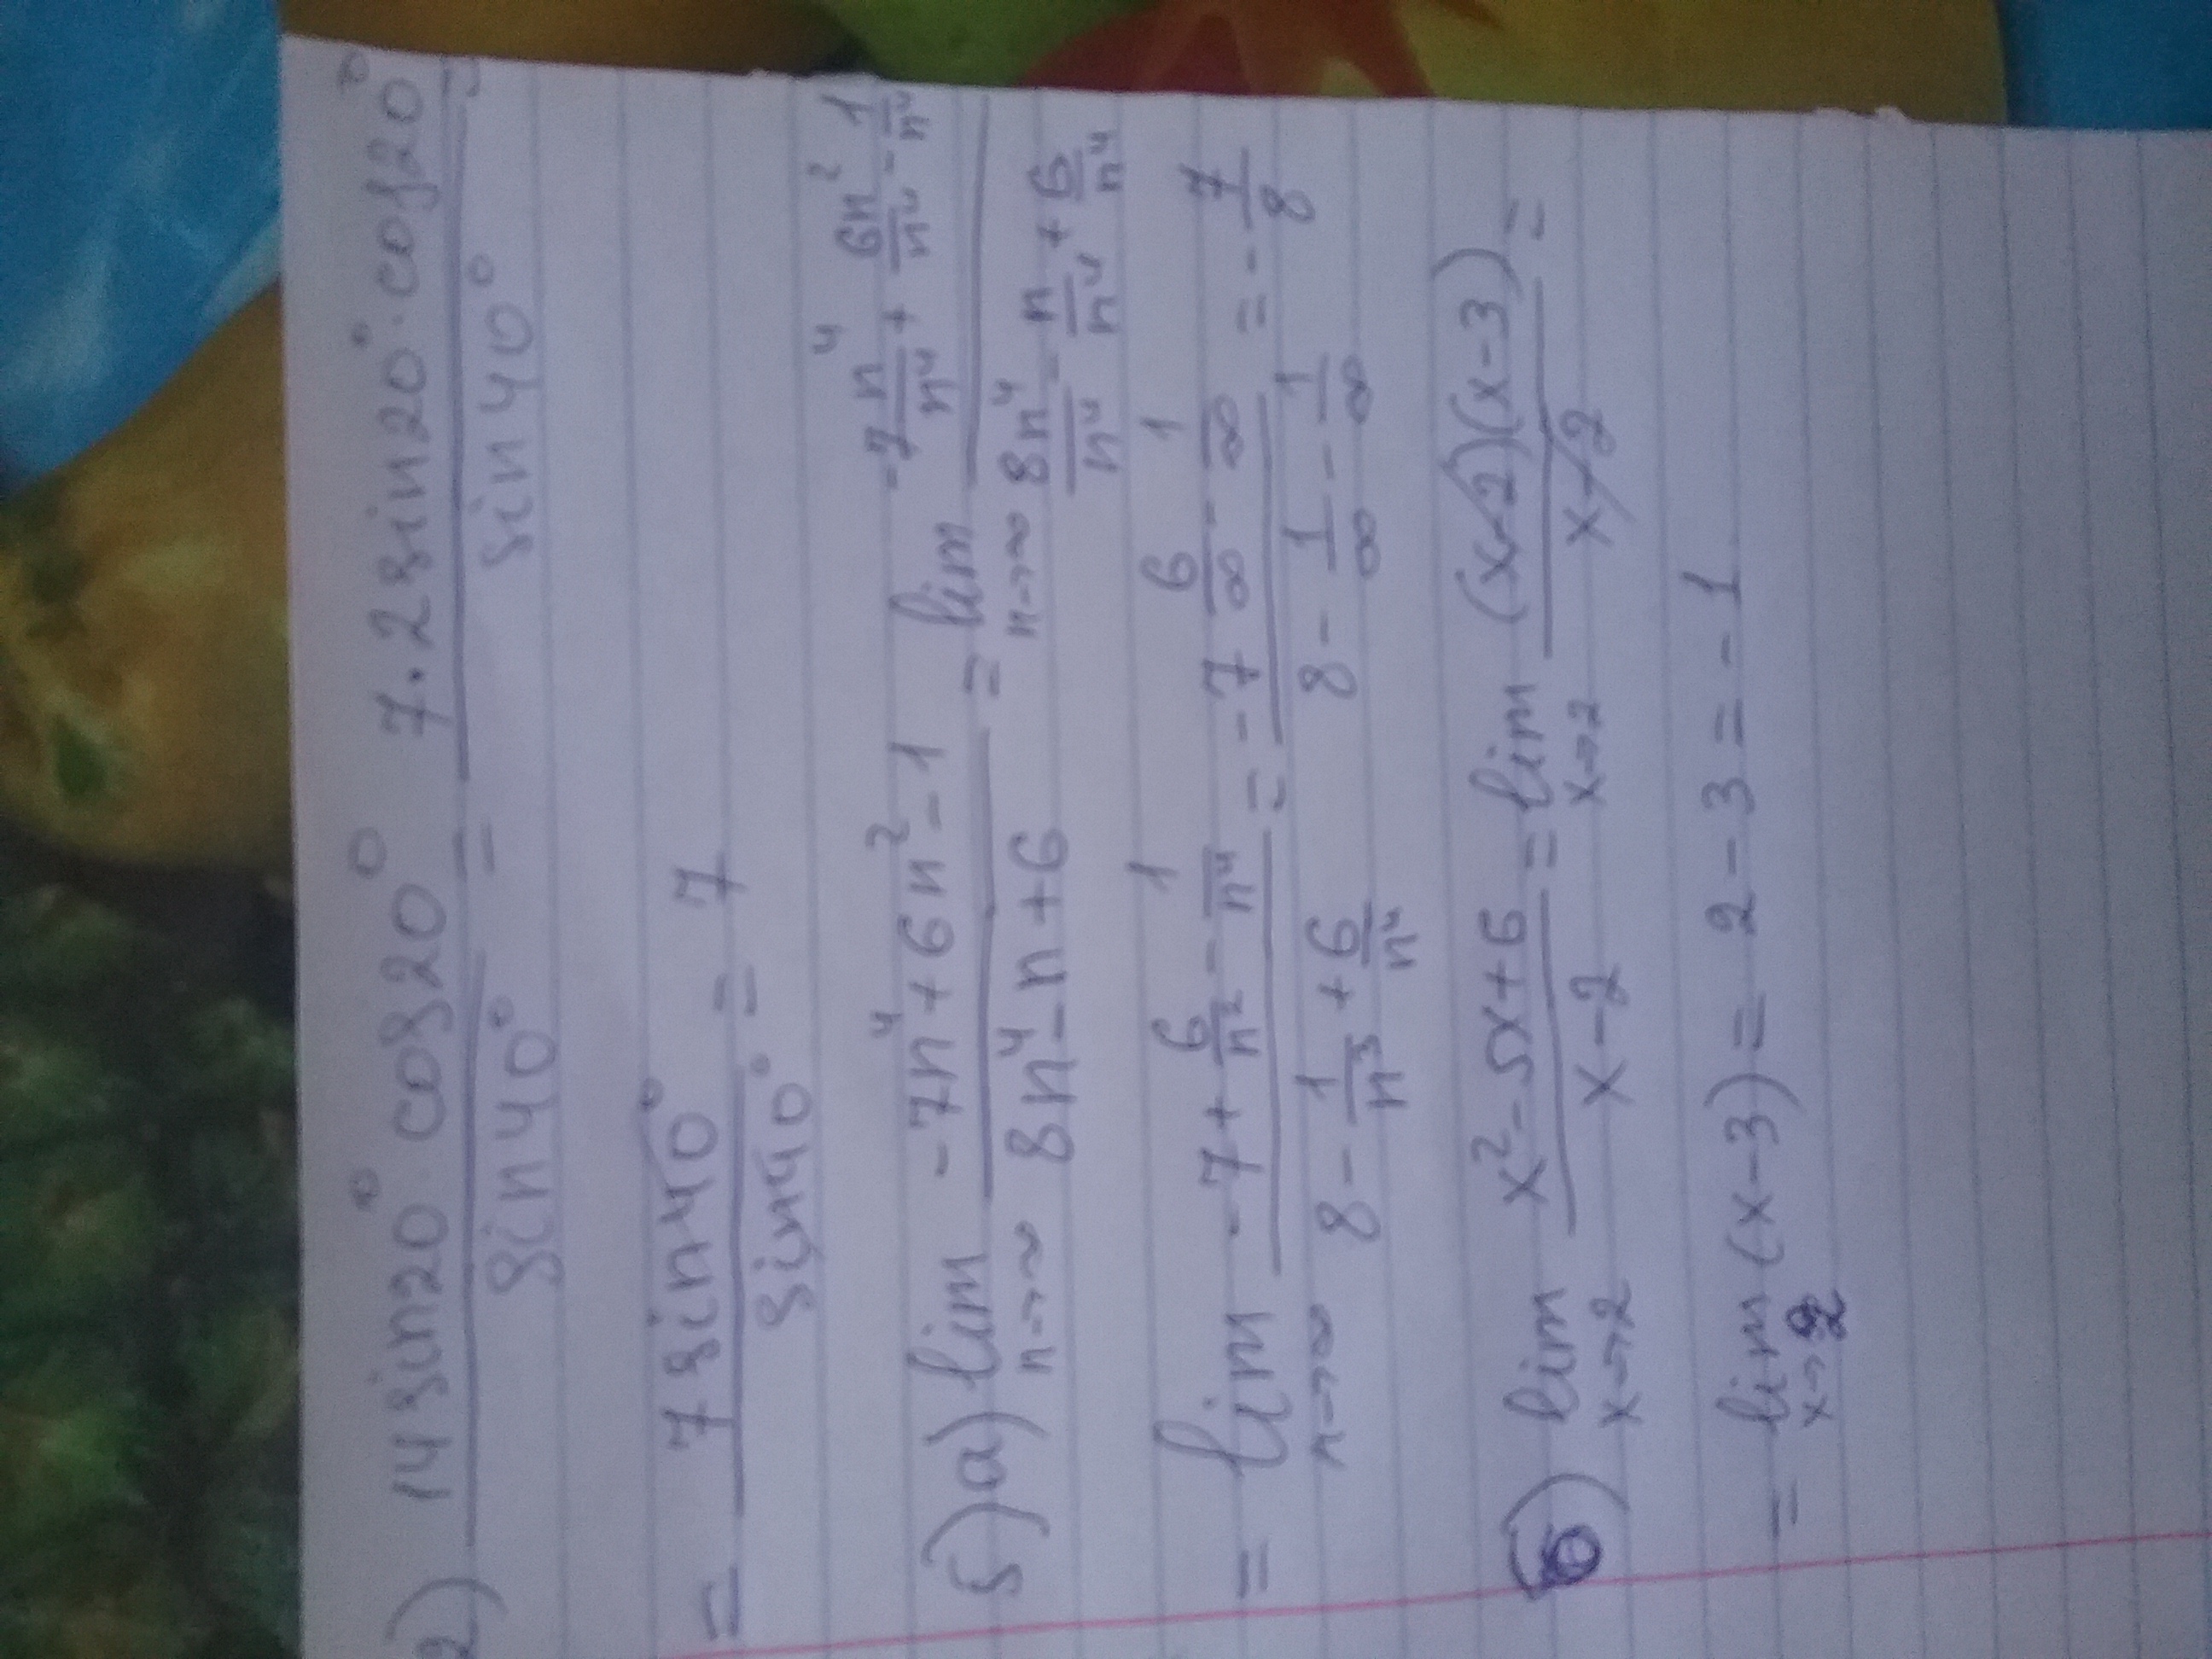 2) 14sin20° cos20° / sin40° = 7·2sin20°·cos20° / sin40° =
= 7sin40° / sin40° = 7
5) a) lim n→∞ (-7n⁴+6n²-1) / (8n⁴-n+6) = lim n→∞ (-7 n⁴/n⁴ + 6n²/n⁴ - 1/n⁴) / (8n⁴/n⁴ - n/n⁴ + 6/n⁴)
= lim n→∞ (-7 + 6/n² - 1/n⁴) / (8 - 1/n³ + 6/n⁴) = (-7 6/∞ - 1/∞) / (8 - 1/∞ - 1/∞) = -7/8
б) lim x→2 (x²-5x+6) / (x-2) = lim x→2 (x-2)(x-3) / (x-2) =
= lim x→2 (x-3) = 2-3 = -1